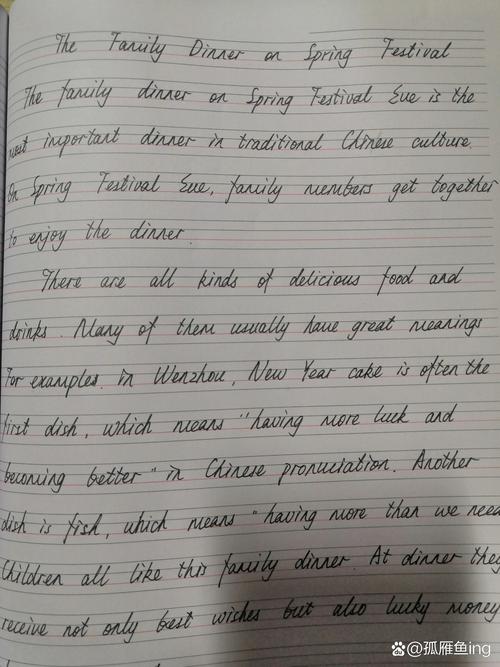 The Family Dinner on Spring Festival
The family dinner on Spring Festival Eve is the
most important dinner in traditional Chinese culture.
On Spring Festival Eve, family members get together
to enjoy the dinner.
There are all kinds of delicious food and
drinks. Many of them usually have great meanings
For examples. in Wenzhou, New Year cake is often the
first dish, which means "having more luck and
becoming better" in Chinese pronuciation. Another
dish is fish, which means "having more than we need
Children all like this family dinner. At dinner they
receive not only best wishes but also lucky money
Bai度 @孤雁鱼ing